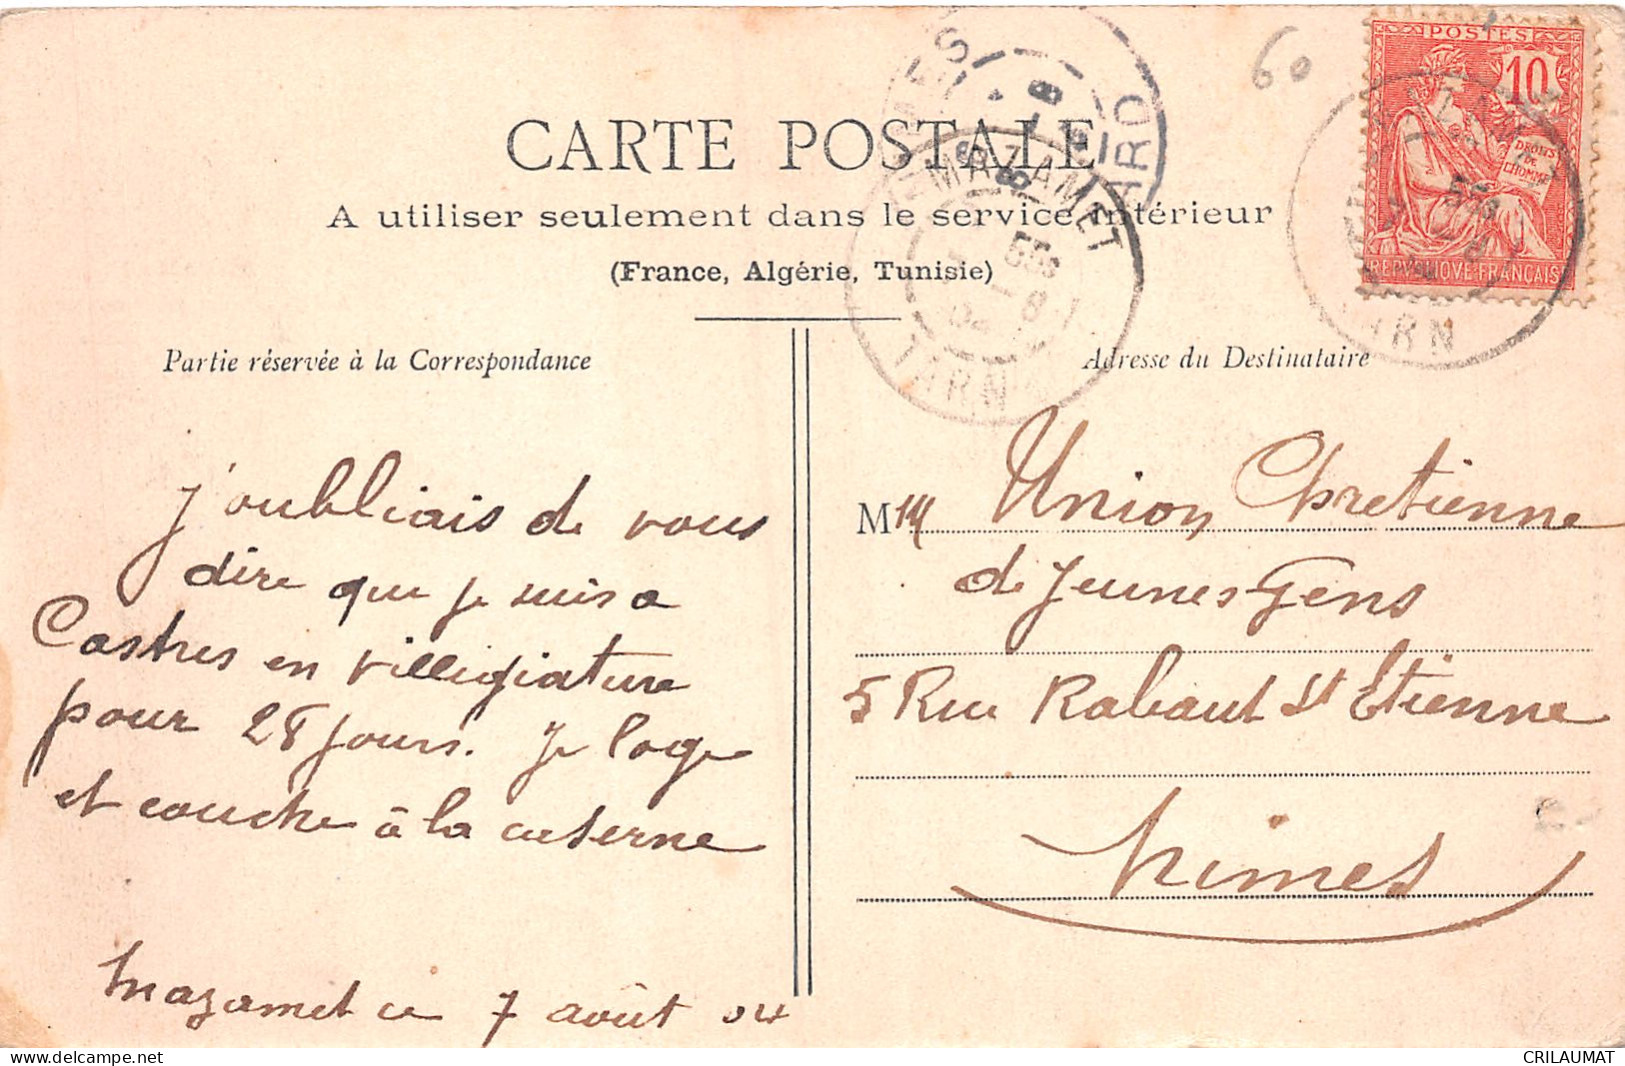 CARTE POSTALE
A utiliser seulement dans le service intérieur
(France, Algérie, Tunisie)
Partie réservée à la Correspondance
Adresse du Destinataire
60
POSTES
10
DROITS
DE
L'HOMME
REPUBLIQUE FRANÇAISE
MAZAMET
TARN
j'oubliais de vous
dire que je suis a
Castres en villegiature
pour 28 jours. Je loge
et couche à la caserne
Mazamet ce 7 août 04
M
Union Chretienne
de Jeunes Gens
5 Rue Rabaut St Etienne
Nimes
CRILAUMAT